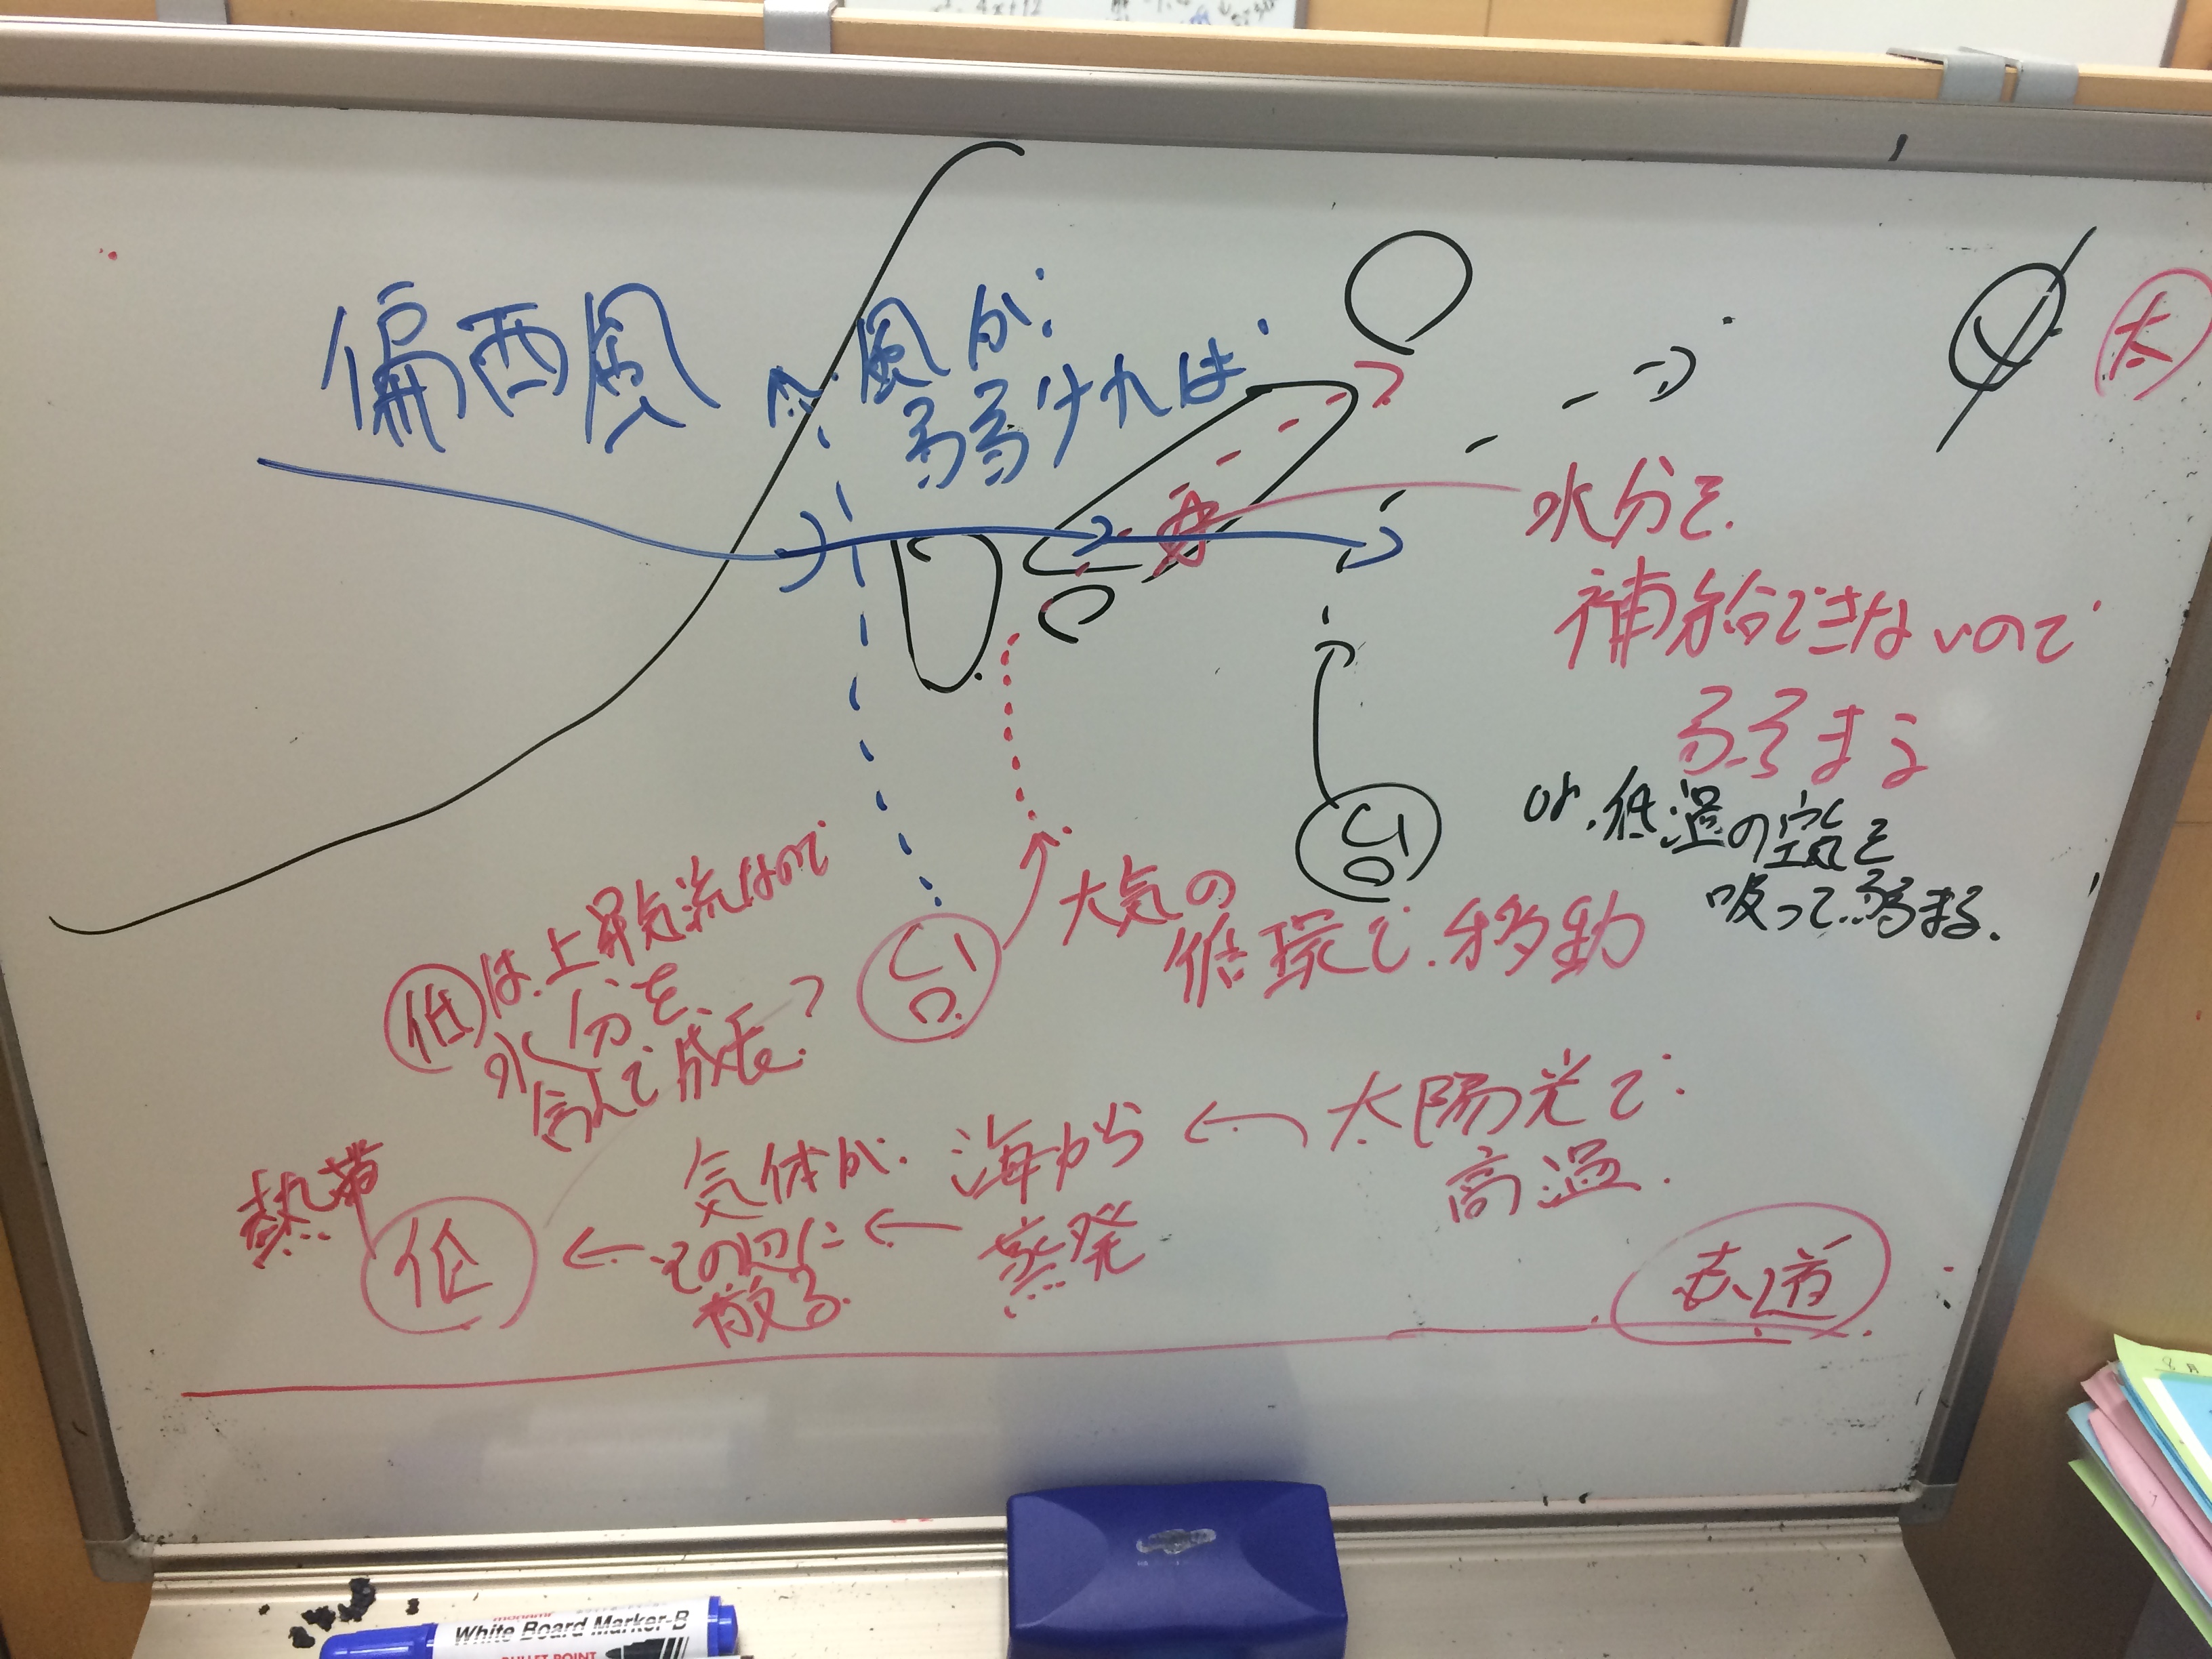 偏西風
風が
弱ければ
太
水分を
補給できないので
弱まる
or 低温の空気を
吸って弱まる.
台
台
大気の
循環で移動
低は上昇気流なので
水分を
含んで成長?
太陽光で
高温.
海から
蒸発
気体が
その辺に
散る.
熱帯
低
赤道
White Board Marker-B
BULLET POINT